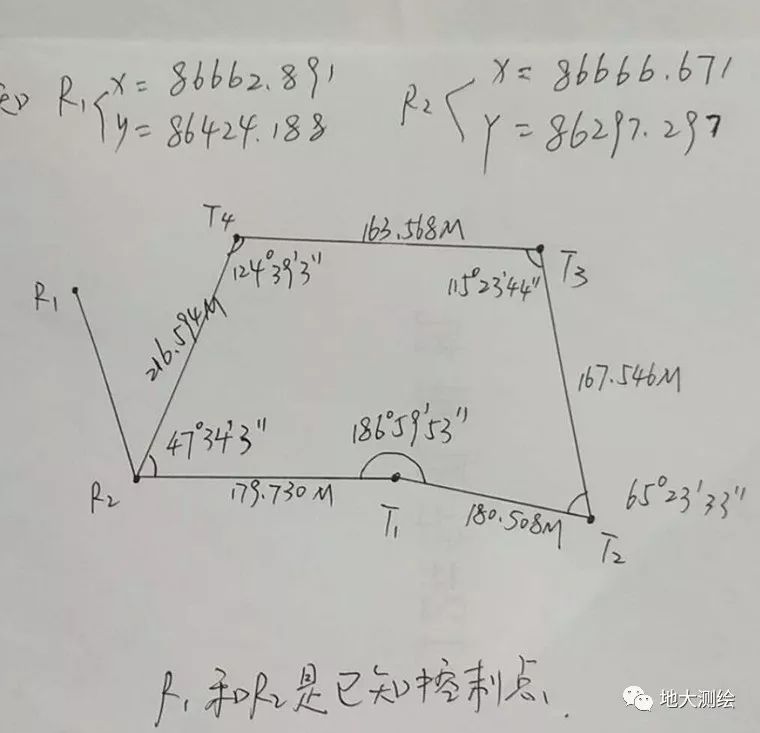 知 R₁ x = 86662.891
y = 86424.188
R₂ x = 86666.671
y = 86297.297
T4
163.568M
T3
124°39'3"
115°23'44"
R₁
216.594M
167.546M
47°34'3"
186°59'53"
65°23'33"
R₂
179.730M
T₁
180.508M
T₂
R₁和R₂是已知控制点.
地大测绘